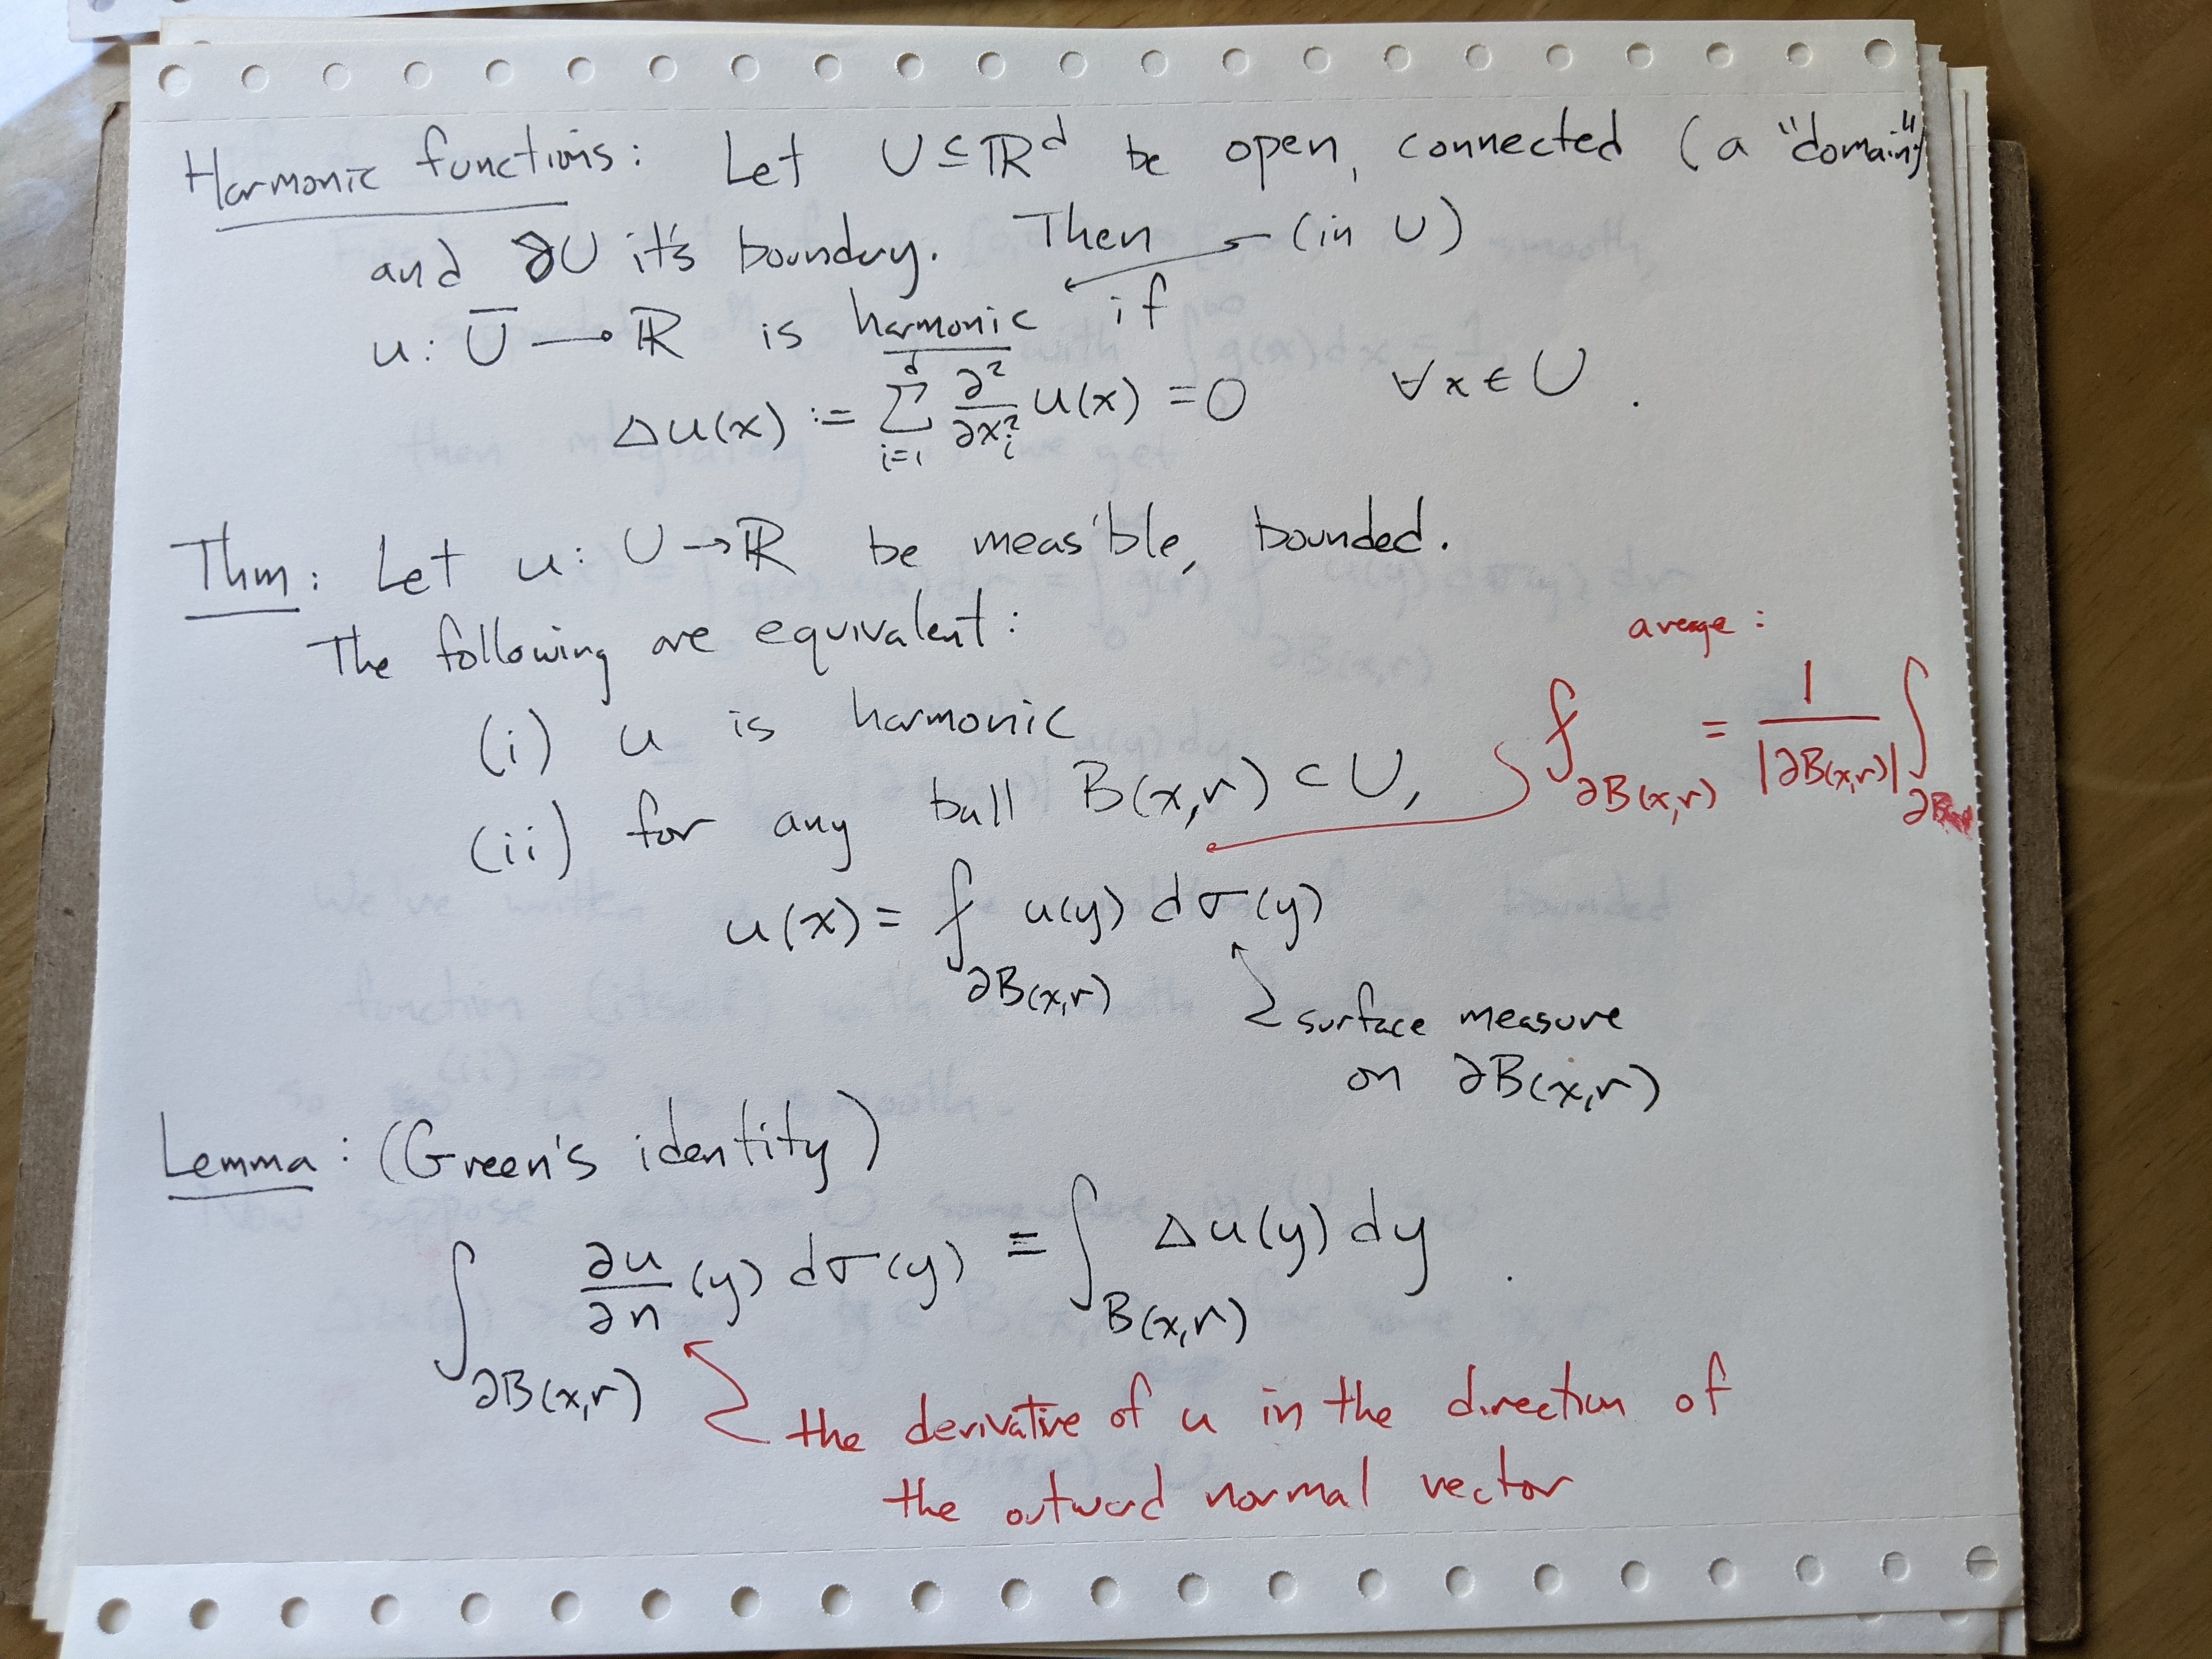 Harmonic functions: Let U ⊆ ℝᵈ be open, connected (a "domain")
and ∂U it's boundary. Then (in U)
u: Ū → ℝ is harmonic if
Δu(x) := ∑_{i=1}^{d} ∂²/∂x_i² u(x) = 0 ∀x ∈ U.
Thm: Let u: U → ℝ be meas'ble, bounded.
The following are equivalent:
average:
(i) u is harmonic
⨍_{∂B(x,r)} = 1/|∂B(x,r)| ∫_∂B
(ii) for any ball B(x,r) ⊂ U,
u(x) = ⨍_{∂B(x,r)} u(y) dσ(y)
surface measure
on ∂B(x,r)
Lemma: (Green's identity)
∫_{∂B(x,r)} ∂u/∂n (y) dσ(y) = ∫_{B(x,r)} Δu(y) dy.
the derivative of u in the direction of
the outward normal vector